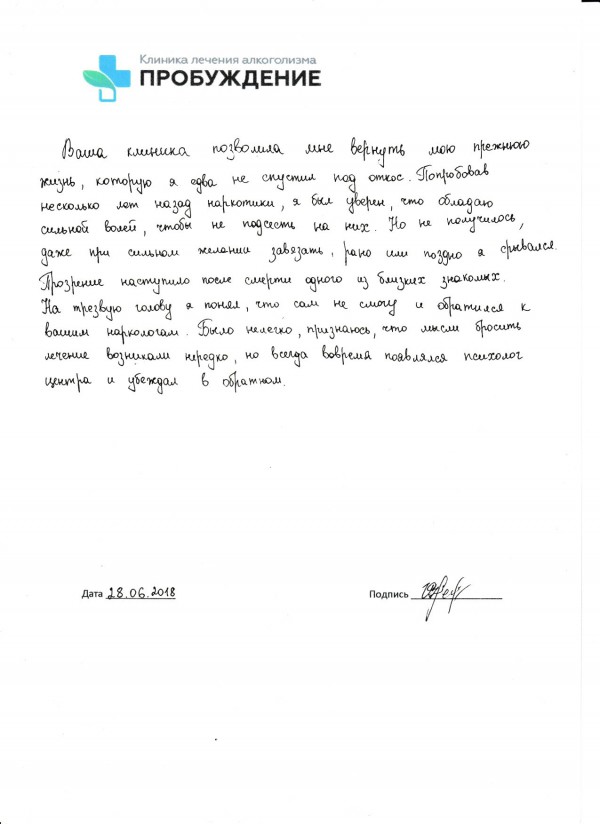 Клиника лечения алкоголизма
ПРОБУЖДЕНИЕ
Ваша клиника позволила мне вернуть мою прежнюю
жизнь, которую я едва не спустил под откос. Попробовав
несколько лет назад наркотики, я был уверен, что обладаю
сильной волей, чтобы не подсесть на них. Но не получилось,
даже при сильном желании завязать, рано или поздно я срывался.
Прозрение наступило после смерти одного из близких знакомых.
На трезвую голову я понял, что сам не смогу и обратился к
вашим наркологам. Было нелегко, признаюсь, что мысли бросить
лечение возникали нередко, но всегда вовремя появлялся психолог
центра и убеждал в обратном.
Дата 28.06.2018 Подпись